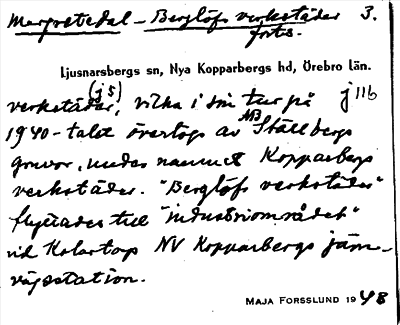 Margretedal – Berglöfs verkstäder 3.
forts.
Ljusnarsbergs sn, Nya Kopparbergs hd, Örebro län.
(j 5)
verkstäder, vilka i sin tur på j 11b
1940-talet övertogs av AB Ställbergs
gruvor, under namnet Kopparbergs
verkstäder. "Berglöfs verkstäder"
flyttades till "industriområdet"
vid Kolartorp NV Kopparbergs järn-
vägsstation.
MAJA FORSSLUND 1948